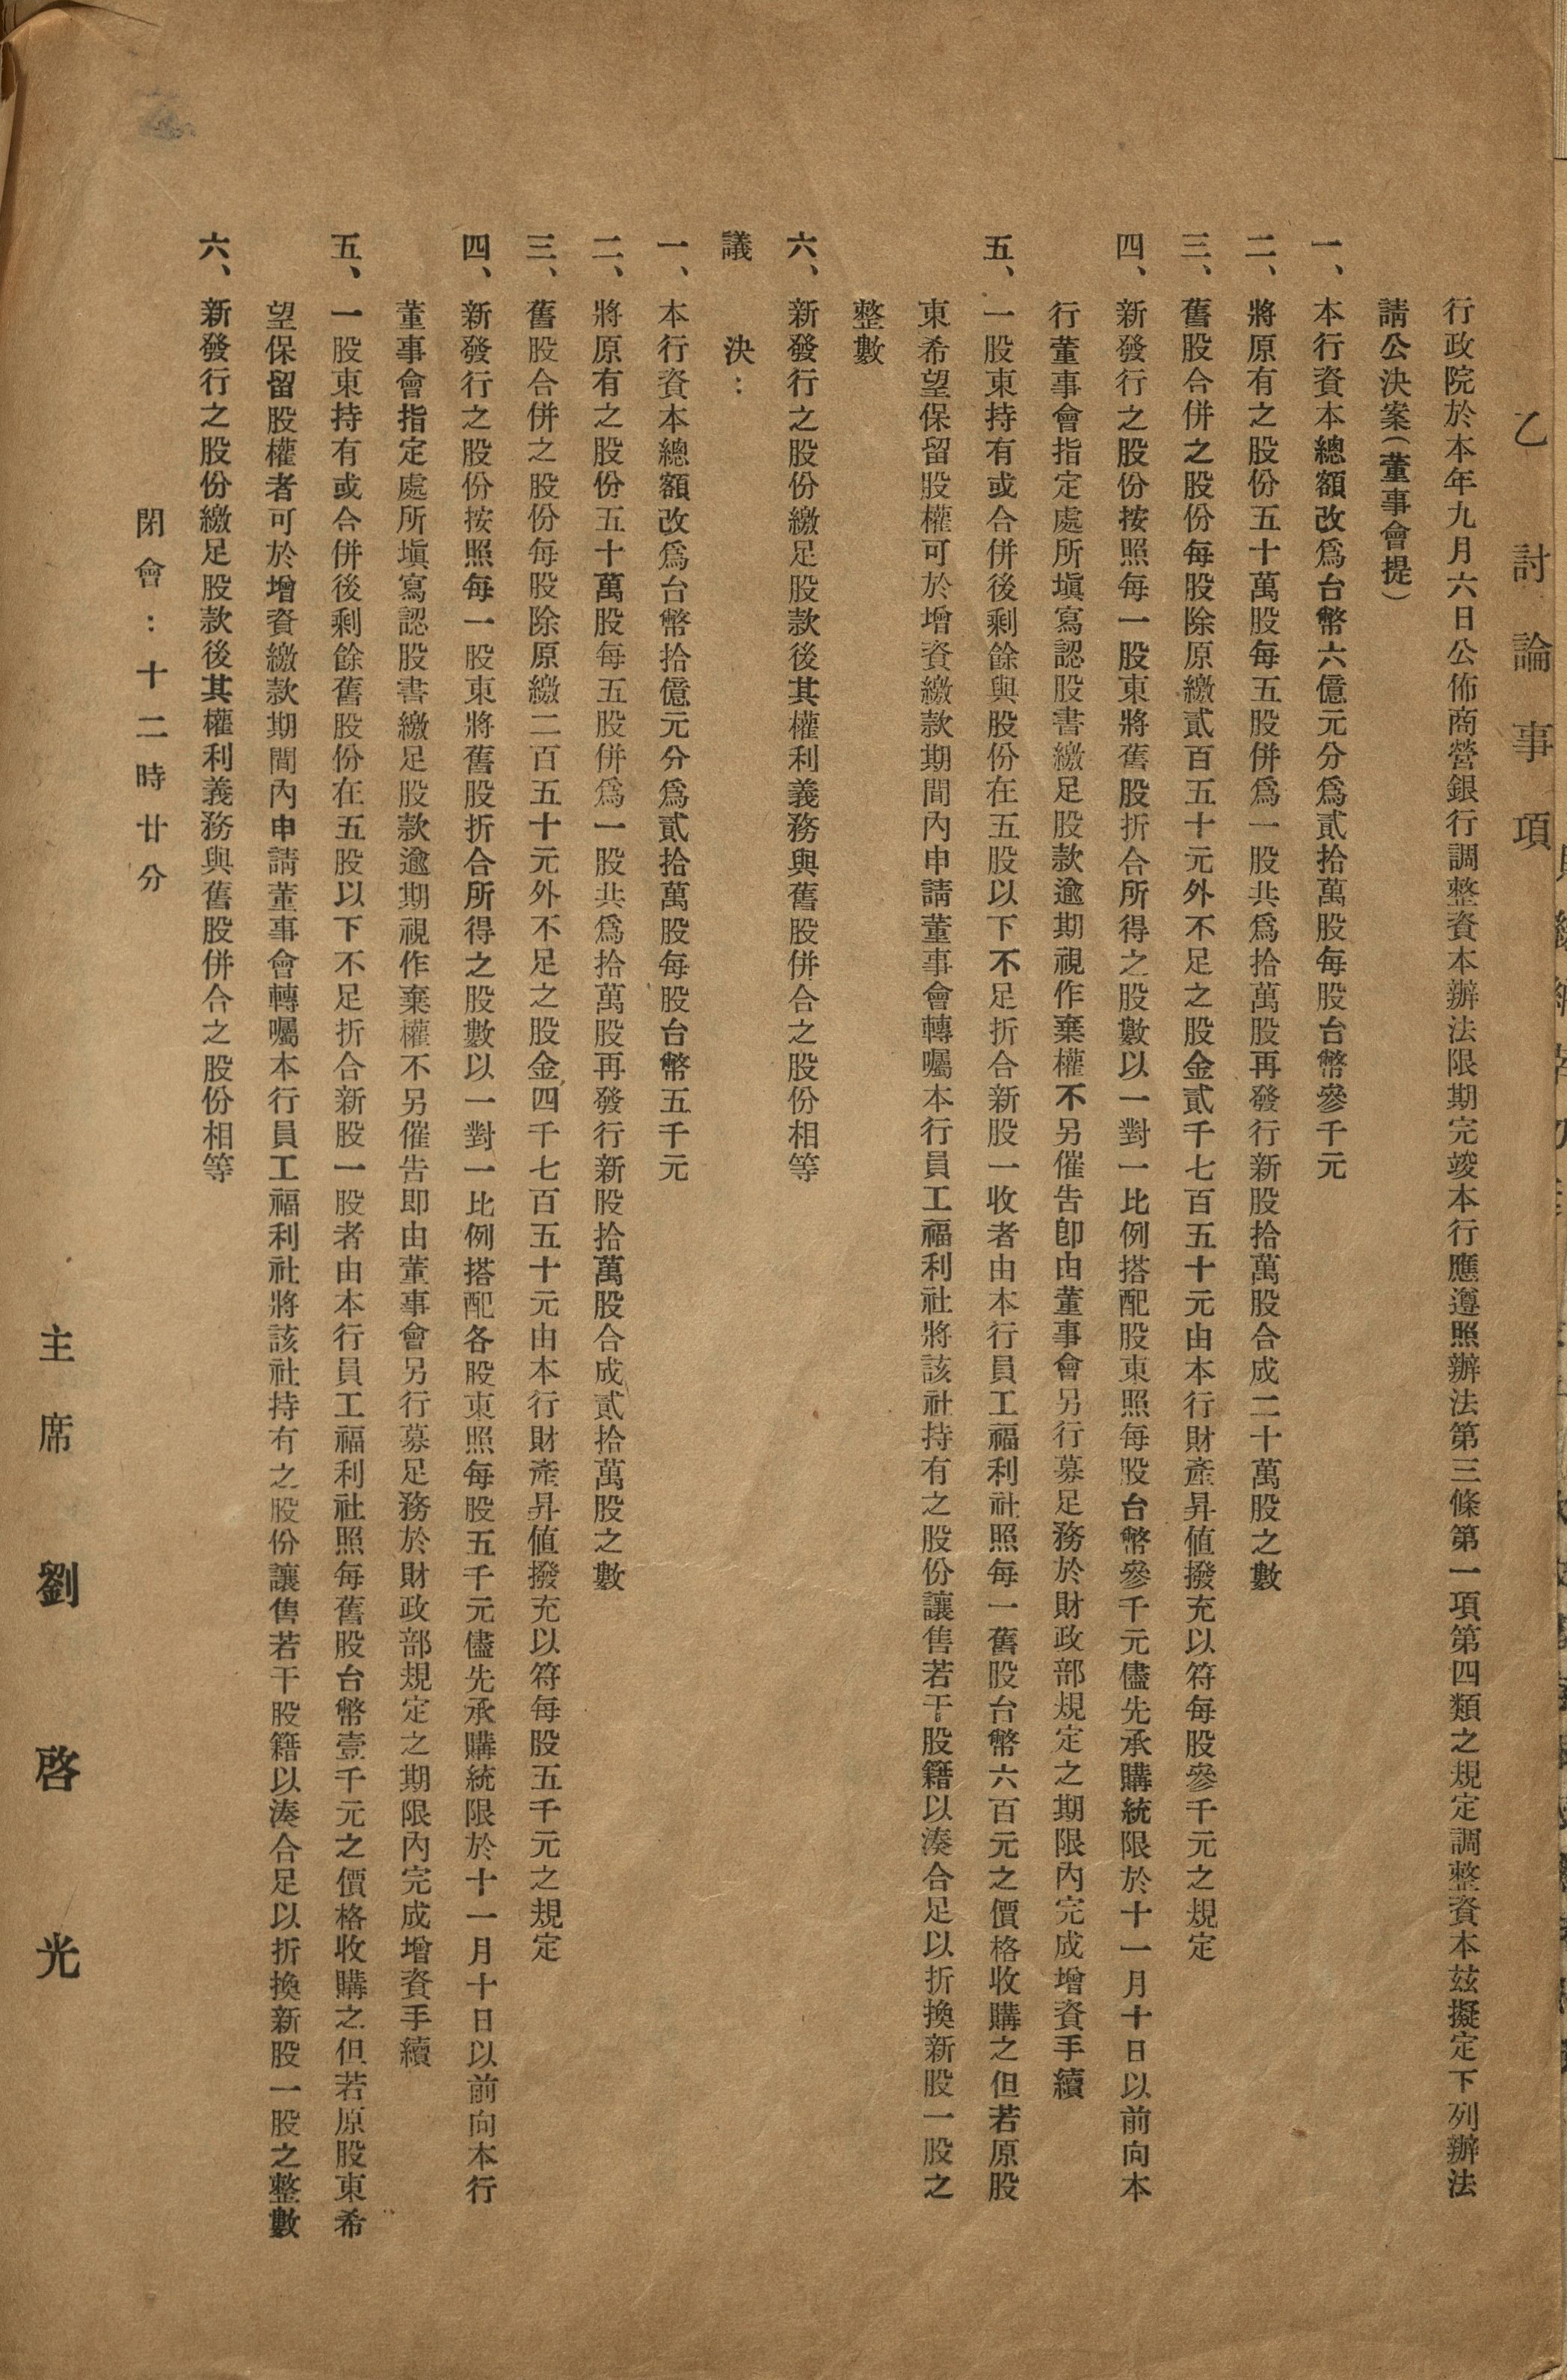 乙　討論事項
行政院於本年九月六日公佈商營銀行調整資本辦法限期完竣本行應遵照辦法第三條第一項第四類之規定調整資本茲擬定下列辦法
請公決案（董事會提）
一、本行資本總額改爲台幣六億元分爲貳拾萬股每股台幣參千元
二、將原有之股份五十萬股每五股併爲一股共爲拾萬股再發行新股拾萬股合成二十萬股之數
三、舊股合併之股份每股除原繳貳百五十元外不足之股金貳千七百五十元由本行財產昇值撥充以符每股參千元之規定
四、新發行之股份按照每一股東將舊股折合所得之股數以一對一比例搭配股東照每股台幣參千元儘先承購統限於十一月十日以前向本
行董事會指定處所塡寫認股書繳足股款逾期視作棄權不另催告卽由董事會另行募足務於財政部規定之期限內完成增資手續
五、一股東持有或合併後剩餘與股份在五股以下不足折合新股一收者由本行員工福利社照每一舊股台幣六百元之價格收購之但若原股
東希望保留股權可於增資繳款期間內申請董事會轉囑本行員工福利社將該社持有之股份讓售若干股籍以湊合足以折換新股一股之
整數
六、新發行之股份繳足股款後其權利義務與舊股併合之股份相等
議　決：
一、本行資本總額改爲台幣拾億元分爲貳拾萬股每股台幣五千元
二、將原有之股份五十萬股每五股併爲一股共爲拾萬股再發行新股拾萬股合成貳拾萬股之數
三、舊股合併之股份每股除原繳二百五十元外不足之股金四千七百五十元由本行財產昇值撥充以符每股五千元之規定
四、新發行之股份按照每一股東將舊股折合所得之股數以一對一比例搭配各股東照每股五千元儘先承購統限於十一月十日以前向本行
董事會指定處所塡寫認股書繳足股款逾期視作棄權不另催告即由董事會另行募足務於財政部規定之期限內完成增資手續
五、一股東持有或合併後剩餘舊股份在五股以下不足折合新股一股者由本行員工福利社照每舊股台幣壹千元之價格收購之但若原股東希
望保留股權者可於增資繳款期間內申請董事會轉囑本行員工福利社將該社持有之股份讓售若干股籍以湊合足以折換新股一股之整數
六、新發行之股份繳足股款後其權利義務與舊股併合之股份相等
閉會：十二時廿分
主席　劉啓光